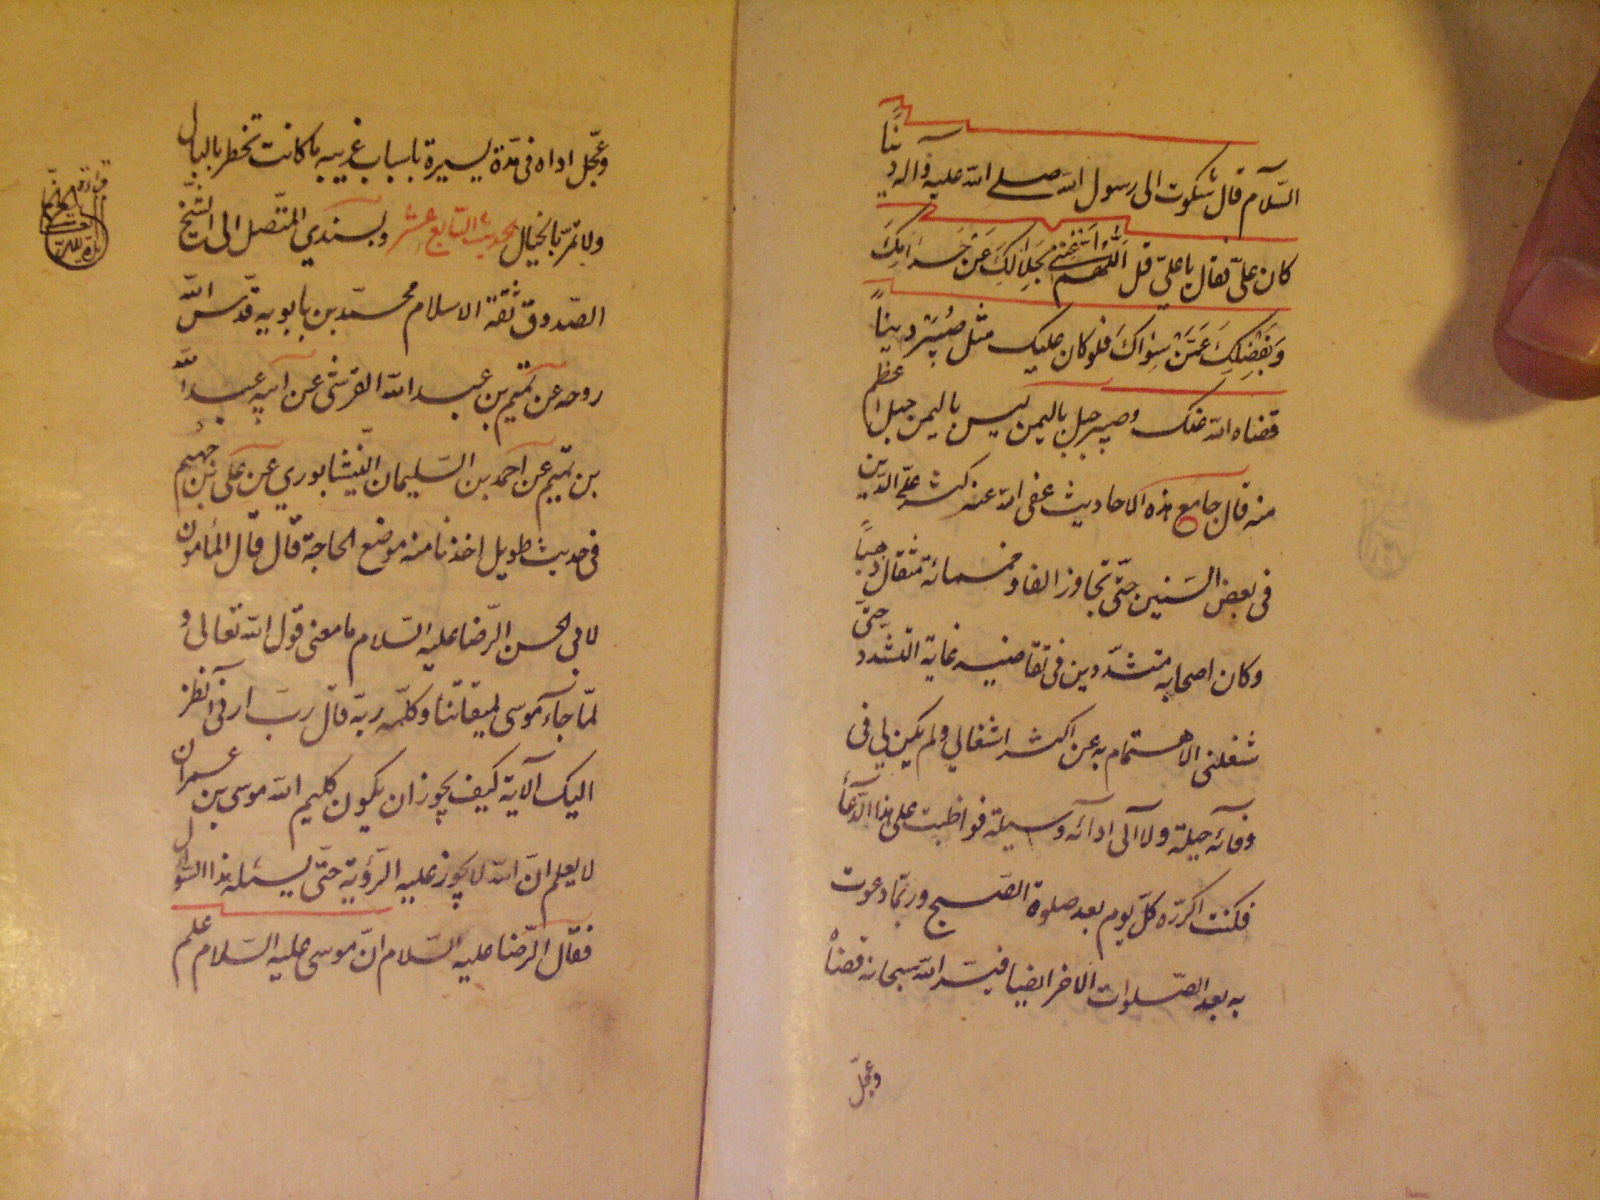 السّلام قال شكوت الى رسول الله صلى الله عليه وآله دينًا
كان علىّ فقال يا علىّ قل اللّهُمَّ اَغْنِنى بِحَلالِكَ عَنْ حَرامِكَ
وَبِفَضْلِكَ عَمَّنْ سِوَاكَ فلو كان عليك مثل صَبِيْر دينًا
قضاه الله عنك وصبير جبل باليمن ليس باليمن جبل اعظم
منه قال جامع هذه الاحاديث عفى الله عنه كثر علىّ الدّين
فى بعض السّنين حتّى تجاوز الفا وخمسمائة مثقال ذهبًا
وكان اصحابه متشدّدين فى تقاضيه غاية التشدد حتّى
شغلنى الاهتمام به عن اكثر اشغالي ولم يكن لي فى
وفائه حيلة ولا الى ادائه وسيلة فواظبت على هذا الدّعاء
فكنت اكرّره كلّ يوم بعد صلوة الصّبح وربّما دعوت
به بعد الصّلوات الاخر ايضا فيسّر الله سبحانه قضاه
وعجّل
وعجّل اداه فى مدّة يسيرة باسباب غريبه ما كانت تخطر بالبال
ولا تمرّ بالخيال الحديث السّابع عشر وبسندي المتّصل الى الشّيخ
الصّدوق ثقة الاسلام محمّد بن بابويه قدّس الله
روحه عن تميم بن عبد الله القرشى عن ابيه عبد الله
بن تميم عن احمد بن السّليمان النّيشابوري عن على بن جهيم
فى حديث طويل اخذنا منه موضع الحاجة قال قال المأمون
لابى الحسن الرّضا عليه السّلام ما معنى قول الله تعالى و
لمّا جاء موسى لميقاتنا وكلّمه ربّه قال ربّ ارنى انظر
اليك الآية كيف يجوز ان يكون كليم الله موسى بن عمران
لا يعلم انّ الله لا يجوز عليه الرّؤية حتّى يسئله هذا السّؤال
فقال الرّضا عليه السّلام انّ موسى عليه السّلام علم